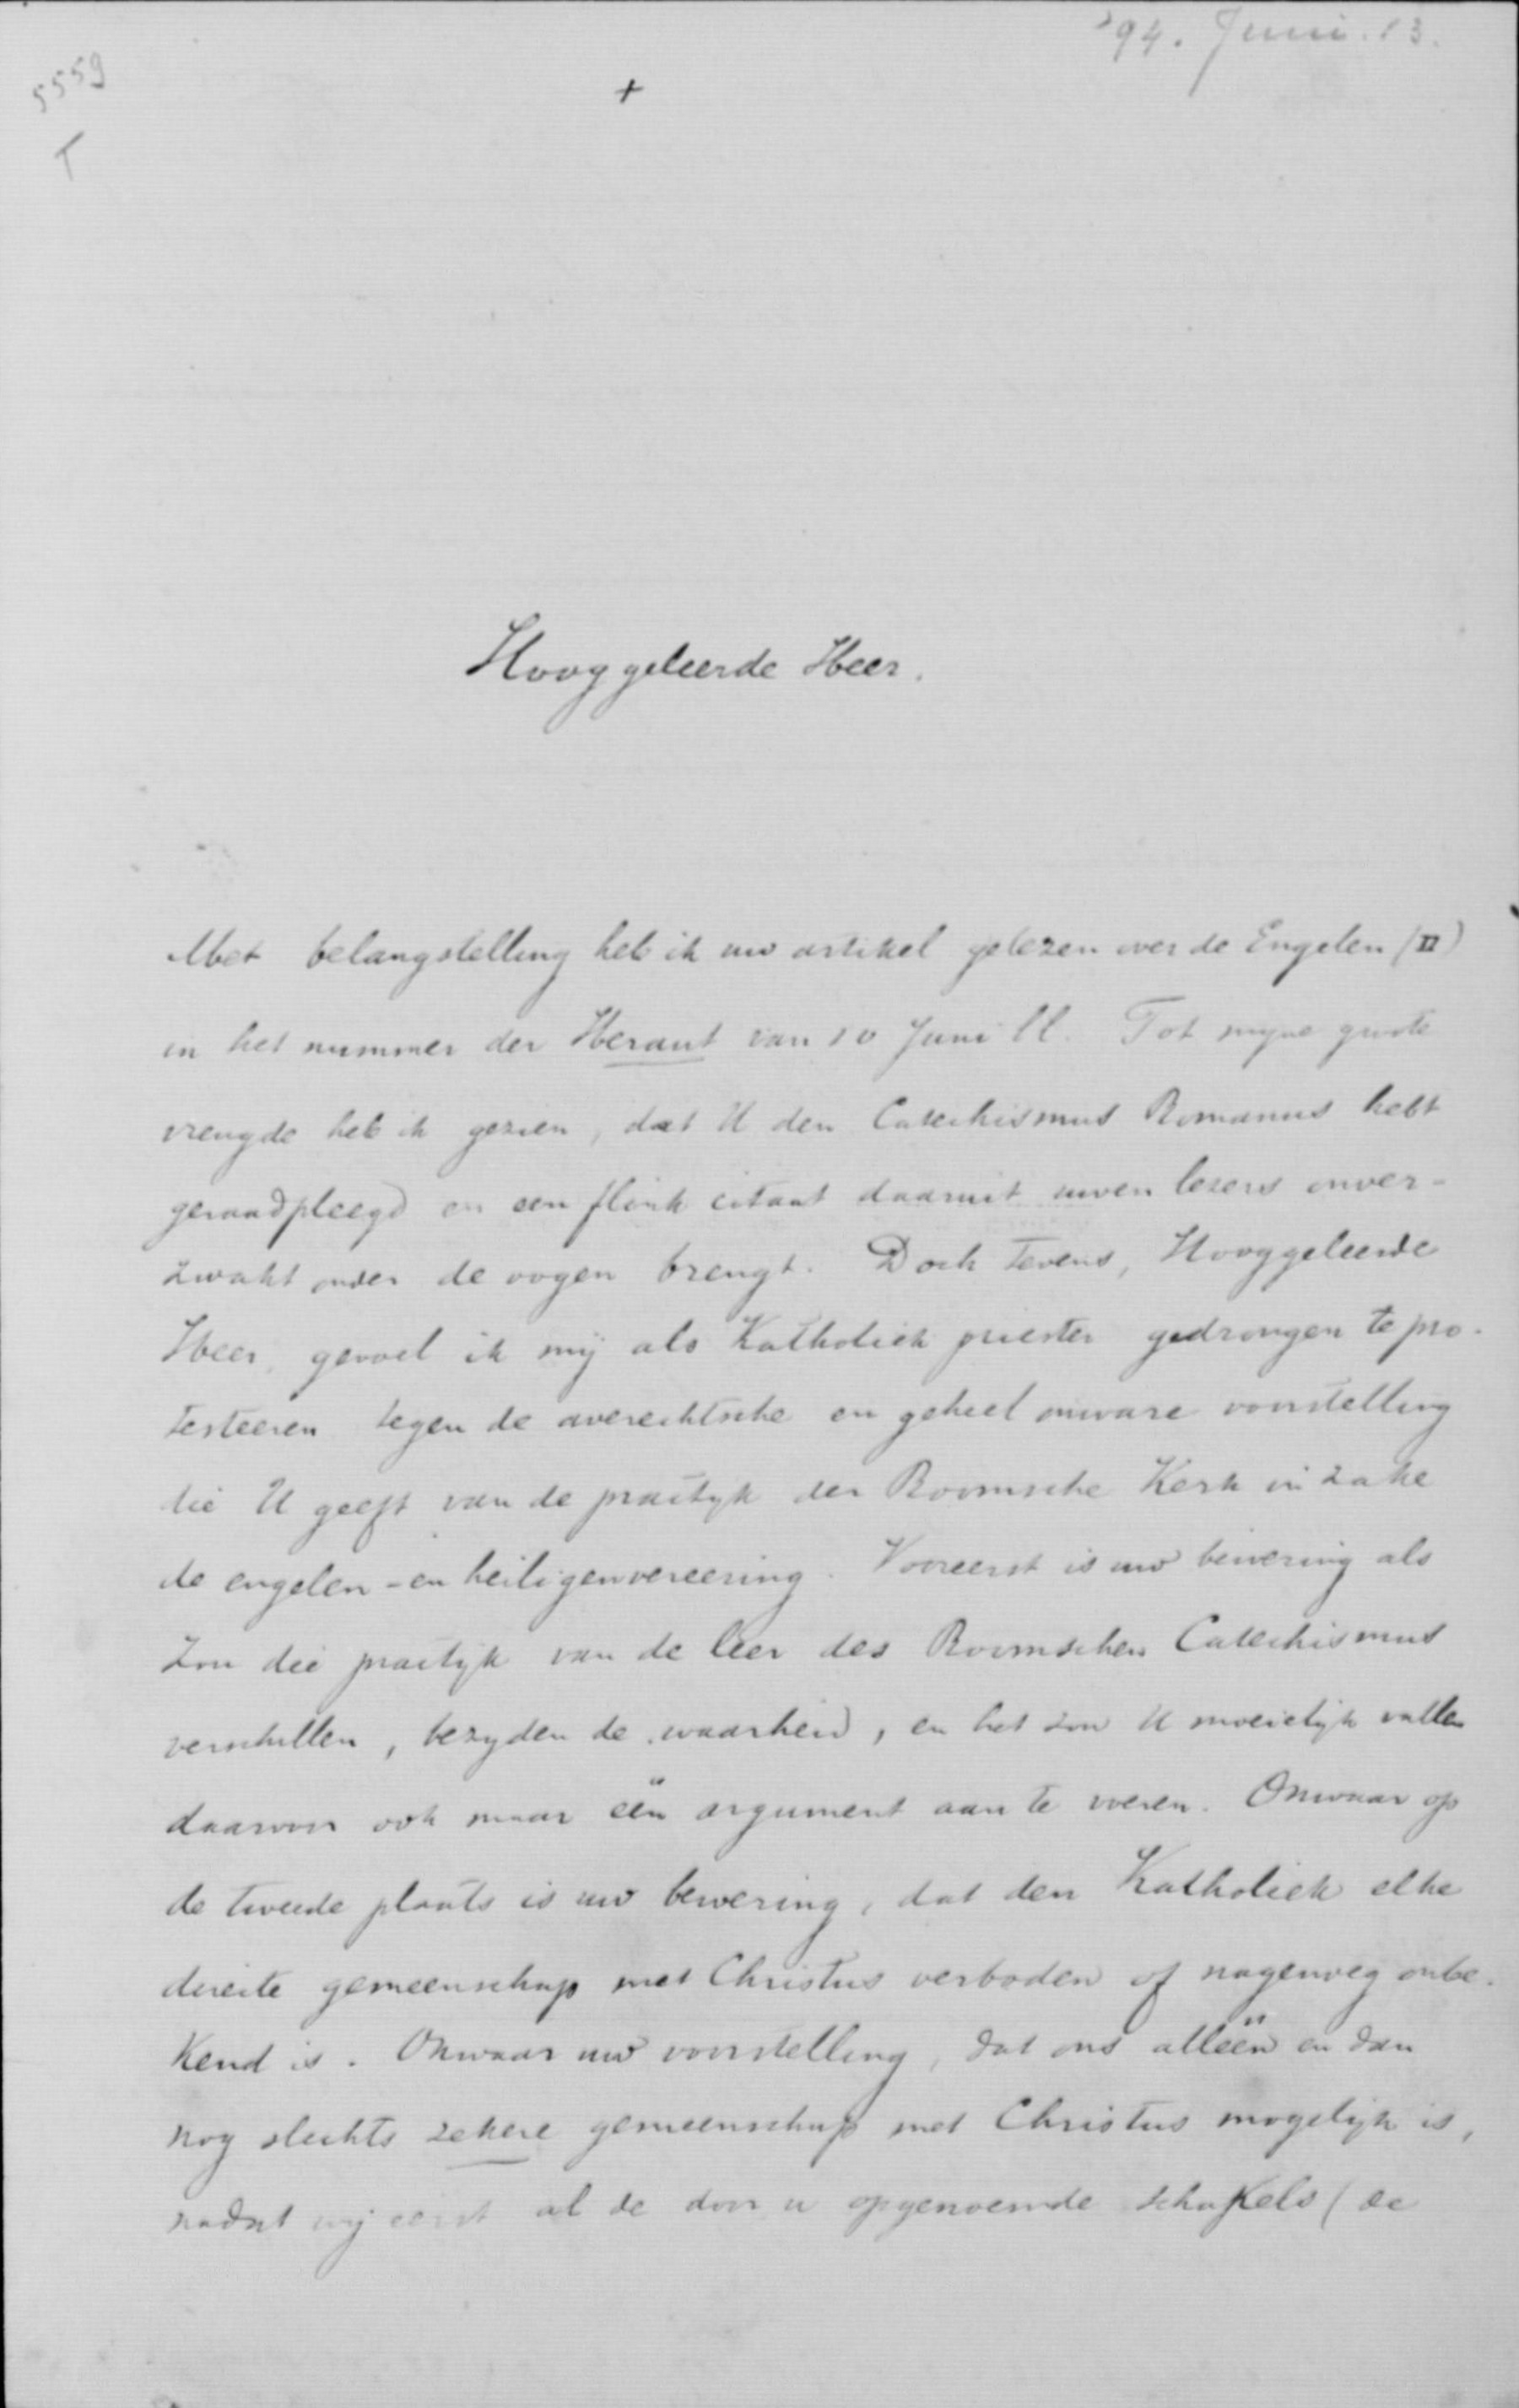 '94. Juni. 13.
5559
T
+
Hooggeleerde Heer.
Met belangstelling heb ik uw artikel gelezen over de Engelen (II)
in het nummer der Heraut van 10 Juni ll. Tot myne groote
vreugde heb ik gezien, dat U den Catechismus Romanus hebt
geraadpleegd en een flink citaat daaruit uwen lezers onver-
zwakt onder de oogen brengt. Doch tevens, Hooggeleerde
Heer, gevoel ik mij als Katholiek priester gedrongen te pro-
testeeren tegen de averechtsche en geheel onware voorstelling
die U geeft van de practyk der Roomsche Kerk in zake
de engelen- en heiligenvereering. Vooreerst is uw bewering als
zou die practyk van de leer des Roomschen Catechismus
verschillen, bezyden de waarheid, en het zou U moeielyk vallen
daarvoor ook maar één argument aan te voeren. Onwaar op
de tweede plaats is uw bewering, dat den Katholiek elke
directe gemeenschap met Christus verboden of nagenoeg onbe-
kend is. Onwaar uw voorstelling, dat ons alléén en dan
nog slechts zekere gemeenschap met Christus mogelijk is,
nadat wij eerst al de door u opgenoemde schakels (de